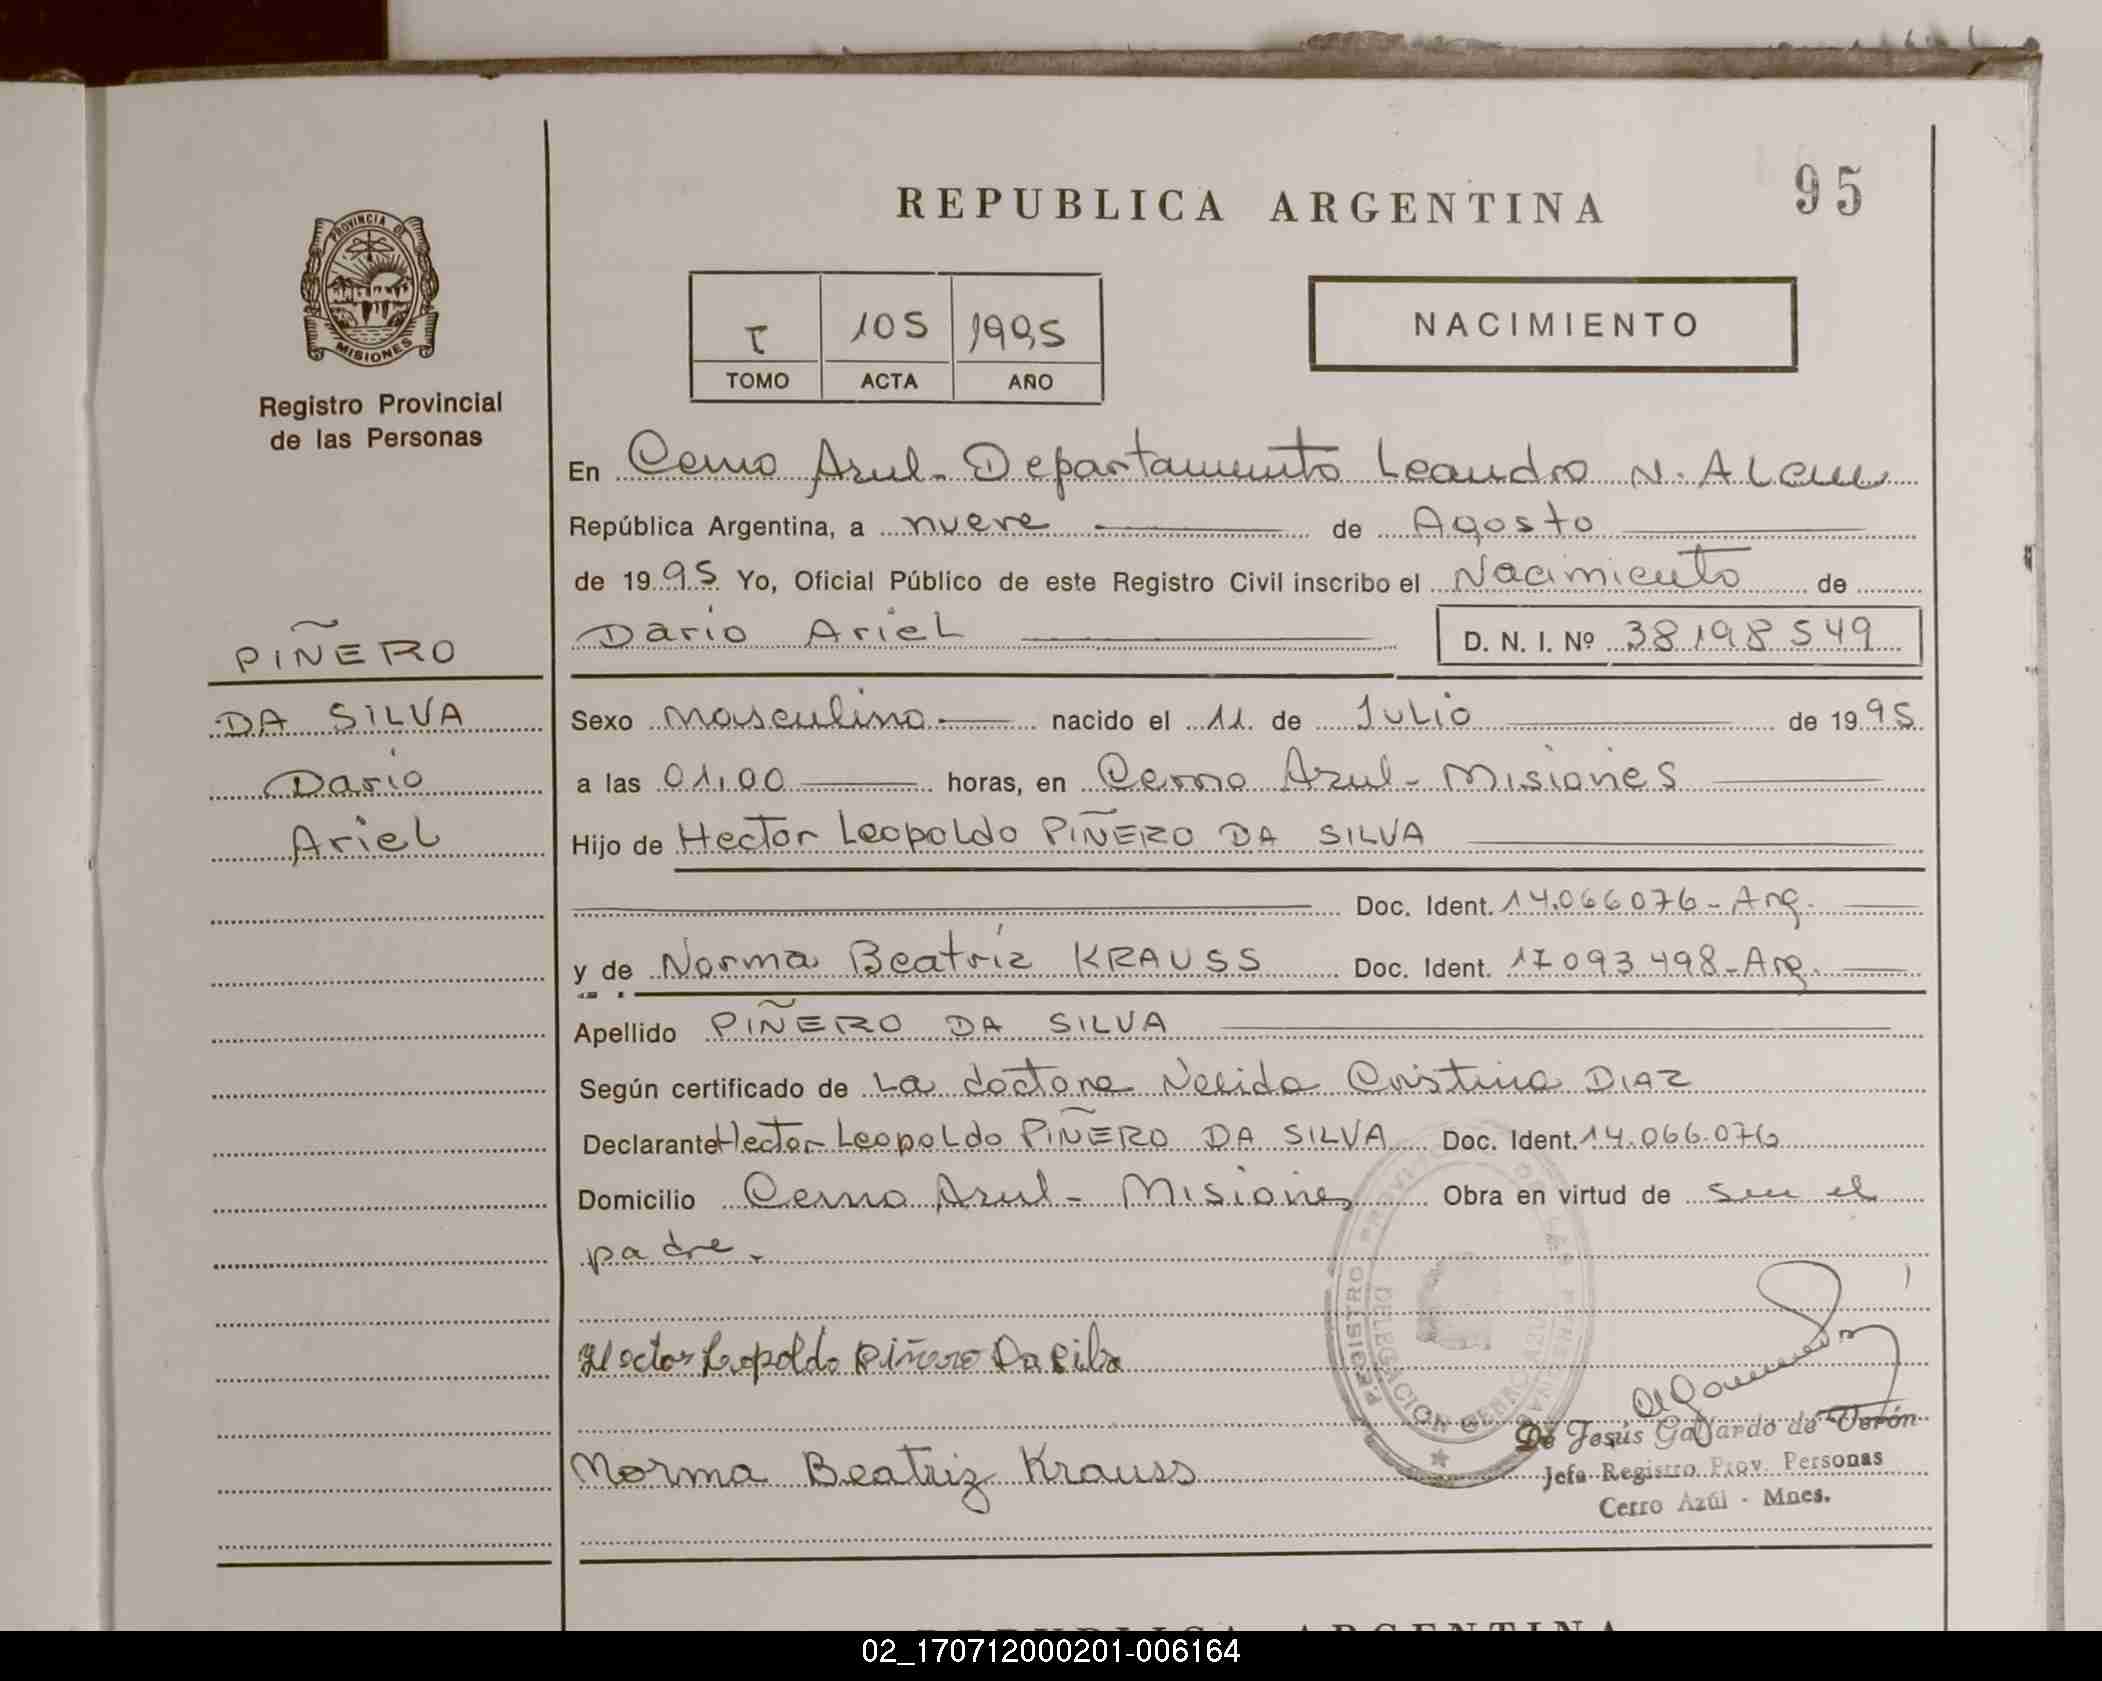 REPUBLICA ARGENTINA
95
PROVINCIA DE
MISIONES
Registro Provincial
de las Personas
I 105 1995
TOMO ACTA AÑO
NACIMIENTO
En Cerro Azul - Departamento Leandro N. Alem
República Argentina, a nueve de Agosto
de 1995 Yo, Oficial Público de este Registro Civil inscribo el Nacimiento de
Dario Ariel D. N. I. Nº 38198549
PIÑERO
DA SILVA
Dario
Ariel
Sexo masculino nacido el 11 de Julio de 1995
a las 01,00 horas, en Cerro Azul - Misiones
Hijo de Hector Leopoldo PIÑERO DA SILVA
Doc. Ident. 14.066076 - Arg.
y de Norma Beatríz KRAUSS Doc. Ident. 17093498 - Arg.
Apellido PIÑERO DA SILVA
Según certificado de La doctora Nelida Cristina DIAZ
Declarante Hector Leopoldo PIÑERO DA SILVA Doc. Ident. 14.066.076
Domicilio Cerro Azul - Misiones Obra en virtud de ser el
padre.
Hector Leopoldo Piñero Da Silva
Norma Beatriz Krauss
REGISTRO PROVINCIAL DE LAS PERSONAS
DELEGACION CERRO AZUL
De Jesús Gallardo de Verón
Jefa Registro Prov. Personas
Cerro Azúl - Mnes.
REPUBLICA ARGENTINA
02_170712000201-006164